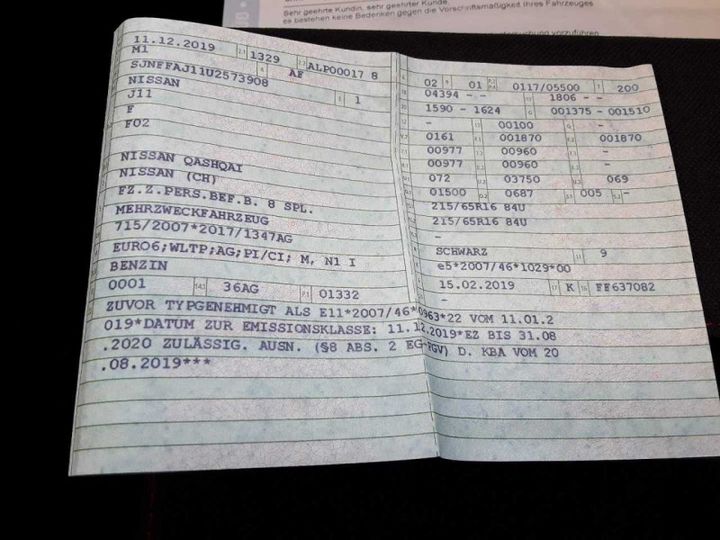 Sehr geehrte Kundin, sehr geehrter Kunde,
es bestehen keine Bedenken gegen die Vorschriftsmäßigkeit Ihres Fahrzeuges
vorzuführen
11.12.2019 1329 ALP00017 8
M1
SJNFFAJ11U2573908 AF
NISSAN 1
J11
F
F02
NISSAN QASHQAI
NISSAN (CH)
FZ.Z.PERS.BEF.B. 8 SPL.
MEHRZWECKFAHRZEUG
715/2007*2017/1347AG
EURO6;WLTP;AG;PI/CI; M, N1 I
BENZIN
0001 36AG 01332
02 01 0117/05500 200
04394 - - 1806 - -
1590 - 1624 001375 - 001510
- 00100 -
0161 001870 001870
00977 00960 -
00977 00960 -
072 03750 069
01500 0687 005 -
215/65R16 84U
215/65R16 84U
-
-
SCHWARZ 9
e5*2007/46*1029*00
15.02.2019 K FF637082
-
ZUVOR TYPGENEHMIGT ALS E11*2007/46*0963*22 VOM 11.01.2
019*DATUM ZUR EMISSIONSKLASSE: 11.12.2019*EZ BIS 31.08
.2020 ZULÄSSIG. AUSN. (§8 ABS. 2 EG-FGV) D. KBA VOM 20
.08.2019***